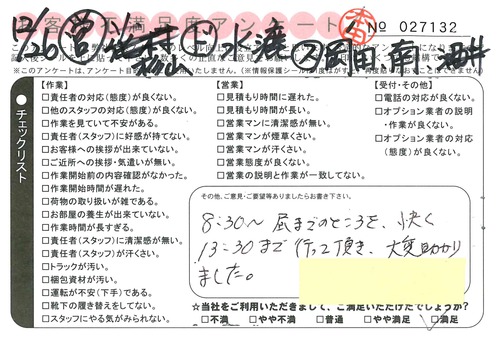 お客様不満足度アンケート 本 No 027132
12/26 営
※このアンケートは、
チェックリスト
【作業】
□責任者の対応(態度)が良くない。
□他のスタッフの対応(態度)が良くない。
□作業を見ていて不安がある。
□責任者(スタッフ)に好感が持てない。
□お客様への挨拶が出来ていない。
□ご近所への挨拶・気遣いが無い。
□作業開始前の内容確認がなかった。
□作業開始時間が遅れた。
□荷物の取り扱いが雑である。
□お部屋の養生が出来ていない。
□作業時間が長すぎる。
□責任者(スタッフ)に清潔感が無い。
□責任者(スタッフ)が汗くさい。
□トラックが汚い。
□梱包資材が汚い。
□運転が不安(下手)である。
□靴下の履き替えをしてない。
□スタッフにやる気がみられない。
【営業】
□見積もり時間に遅れた。
□見積もり時間が長い。
□営業マンに清潔感が無い。
□営業マンが煙草くさい。
□営業マンが汗くさい。
□営業態度が良くない。
□営業の説明と作業が一致してない。
【受付・その他】
□電話の対応が良くない。
□オプション業者の説明
・作業が良くない。
□オプション業者の対応
(態度)が良くない。
その他、ご意見・ご要望等ありましたらお書き下さい。
8:30〜 昼までのところを、快く
13:30まで 行って頂き、大変助かり
ました。
☆当社をご利用いただきまして、ご満足いただけたでしょうか?
□不満 □やや不満 □普通 □やや満足 □満足